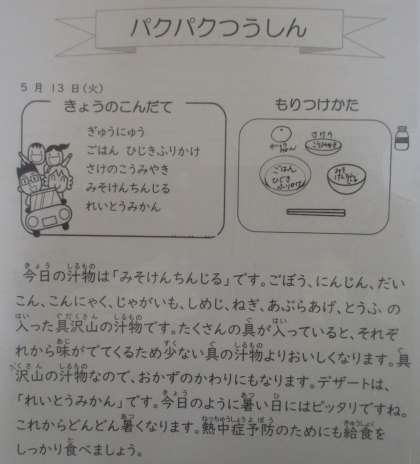 パクパクつうしん
5月 13日(火)
きょうのこんだて
ぎゅうにゅう
ごはん ひじきふりかけ
さけのこうみやき
みそけんちんじる
れいとうみかん
もりつけかた
さけの
こうみやき
ごはん
ひじき
ふりかけ
みそ
けんちん
じる
今日の汁物は「みそけんちんじる」です。ごぼう、にんじん、だい
こん、こんにゃく、じゃがいも、しめじ、ねぎ、あぶらあげ、とうふ の
入った具沢山の汁物です。たくさんの具が入っていると、それぞ
れから味がでてくるため少ない具の汁物よりおいしくなります。具
沢山の汁物なので、おかずのかわりにもなります。デザートは、
「れいとうみかん」です。今日のように暑い日にはピッタリですね。
これからどんどん暑くなります。熱中症予防のためにも給食を
しっかり食べましょう。